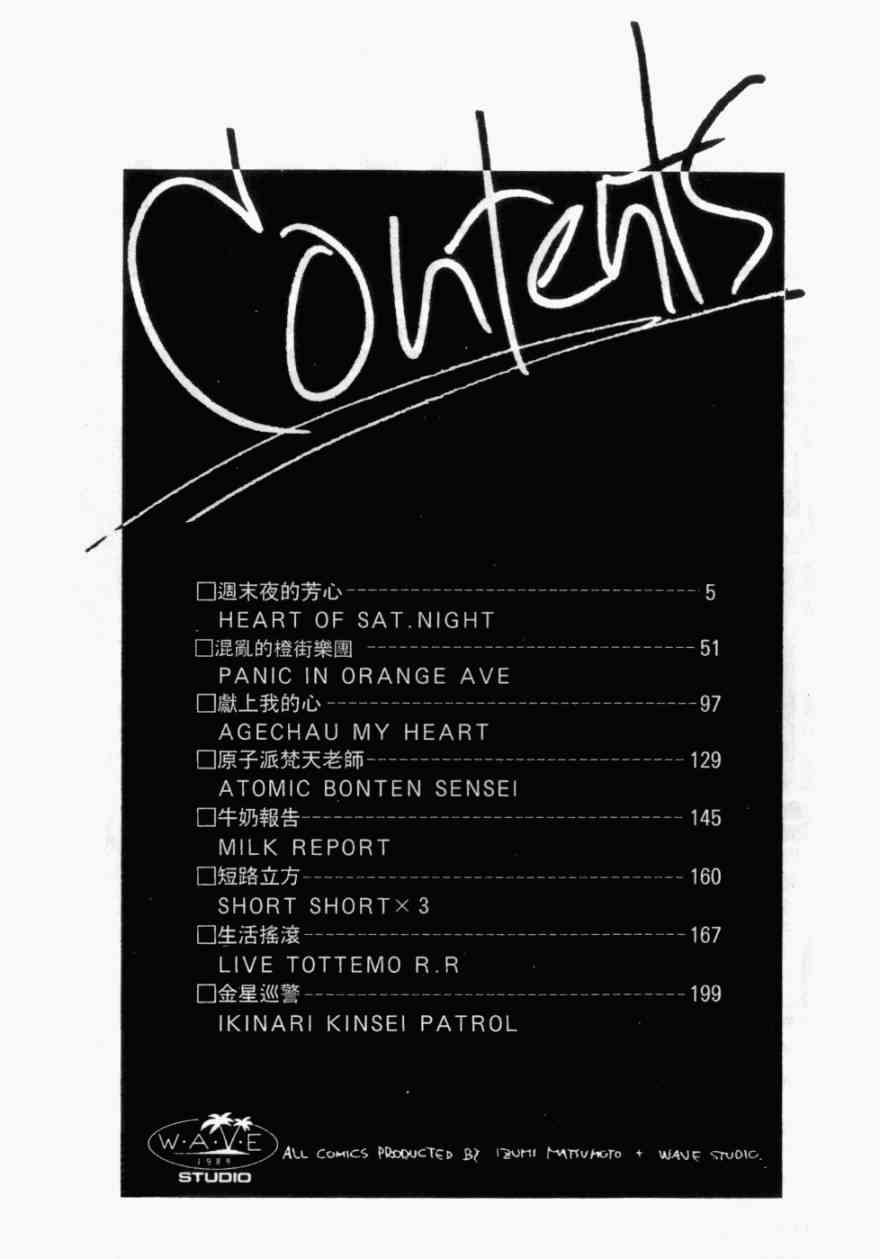 Contents
□週末夜的芳心 5
HEART OF SAT.NIGHT
□混亂的橙街樂團 51
PANIC IN ORANGE AVE
□獻上我的心 97
AGECHAU MY HEART
□原子派梵天老師 129
ATOMIC BONTEN SENSEI
□牛奶報告 145
MILK REPORT
□短路立方 160
SHORT SHORT×3
□生活搖滾 167
LIVE TOTTEMO R.R
□金星巡警 199
IKINARI KINSEI PATROL
W·A·V·E
1989
STUDIO
ALL COMICS PRODUCTED BY IZUMI MATSUMOTO + WAVE STUDIO.